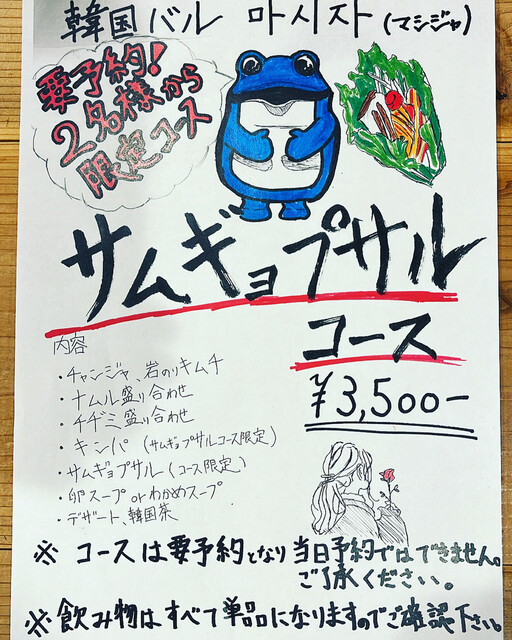 韓国バル 마시자 (マシジャ)
要予約!
2名様から
限定コース
サムギョプサル
コース
¥3,500-
内容
・チャンジャ、岩のりキムチ
・ナムル盛り合わせ
・チヂミ盛り合わせ
・キンパ (サムギョプサルコース限定)
・サムギョプサル (コース限定)
・卵スープorわかめスープ
・デザート、韓国茶
※ コースは要予約となり当日予約ではできません。
ご了承ください。
※飲み物はすべて単品になりますのでご確認下さい。